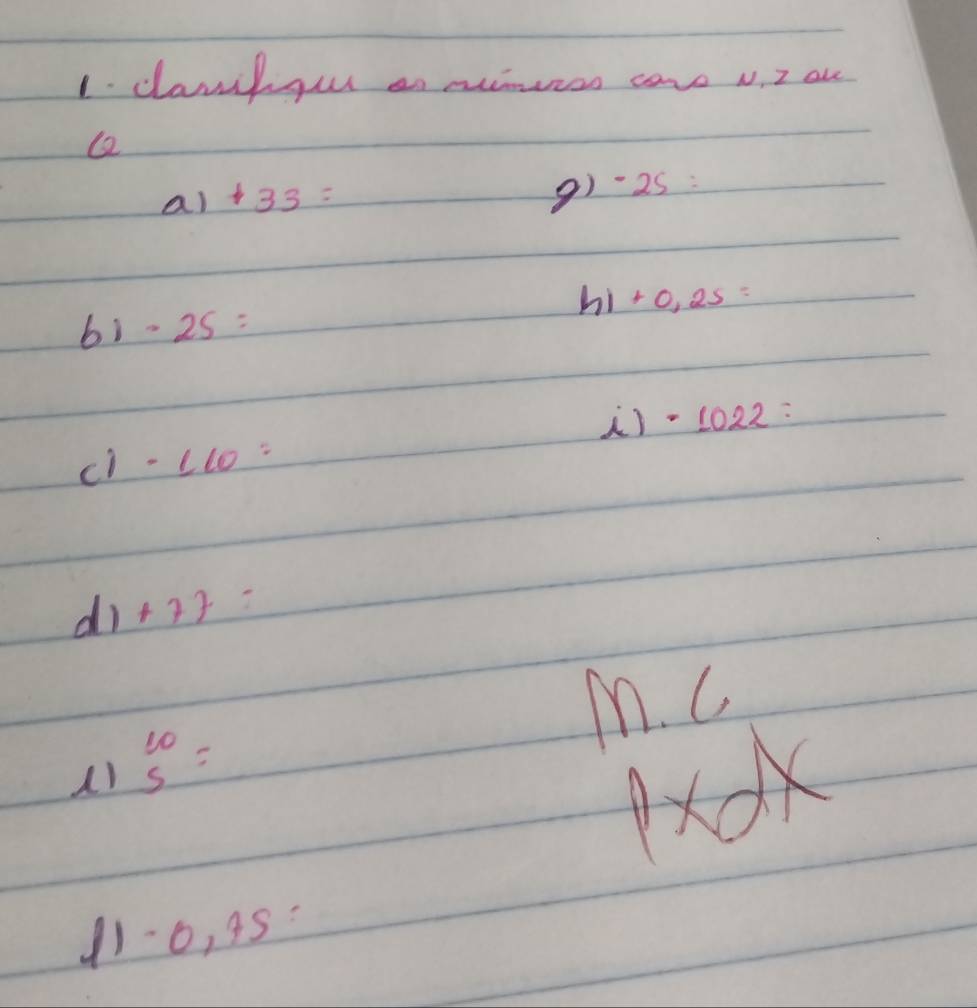 1. Classifique os números como N, Z ou
Q
a) +33 =
g) -25 =
b) - 25 =
h) + 0,25 =
c) - 110 =
i) - 1022 =
d) + 77 =
10
e) 5 =
f) - 0,75 =
M. C